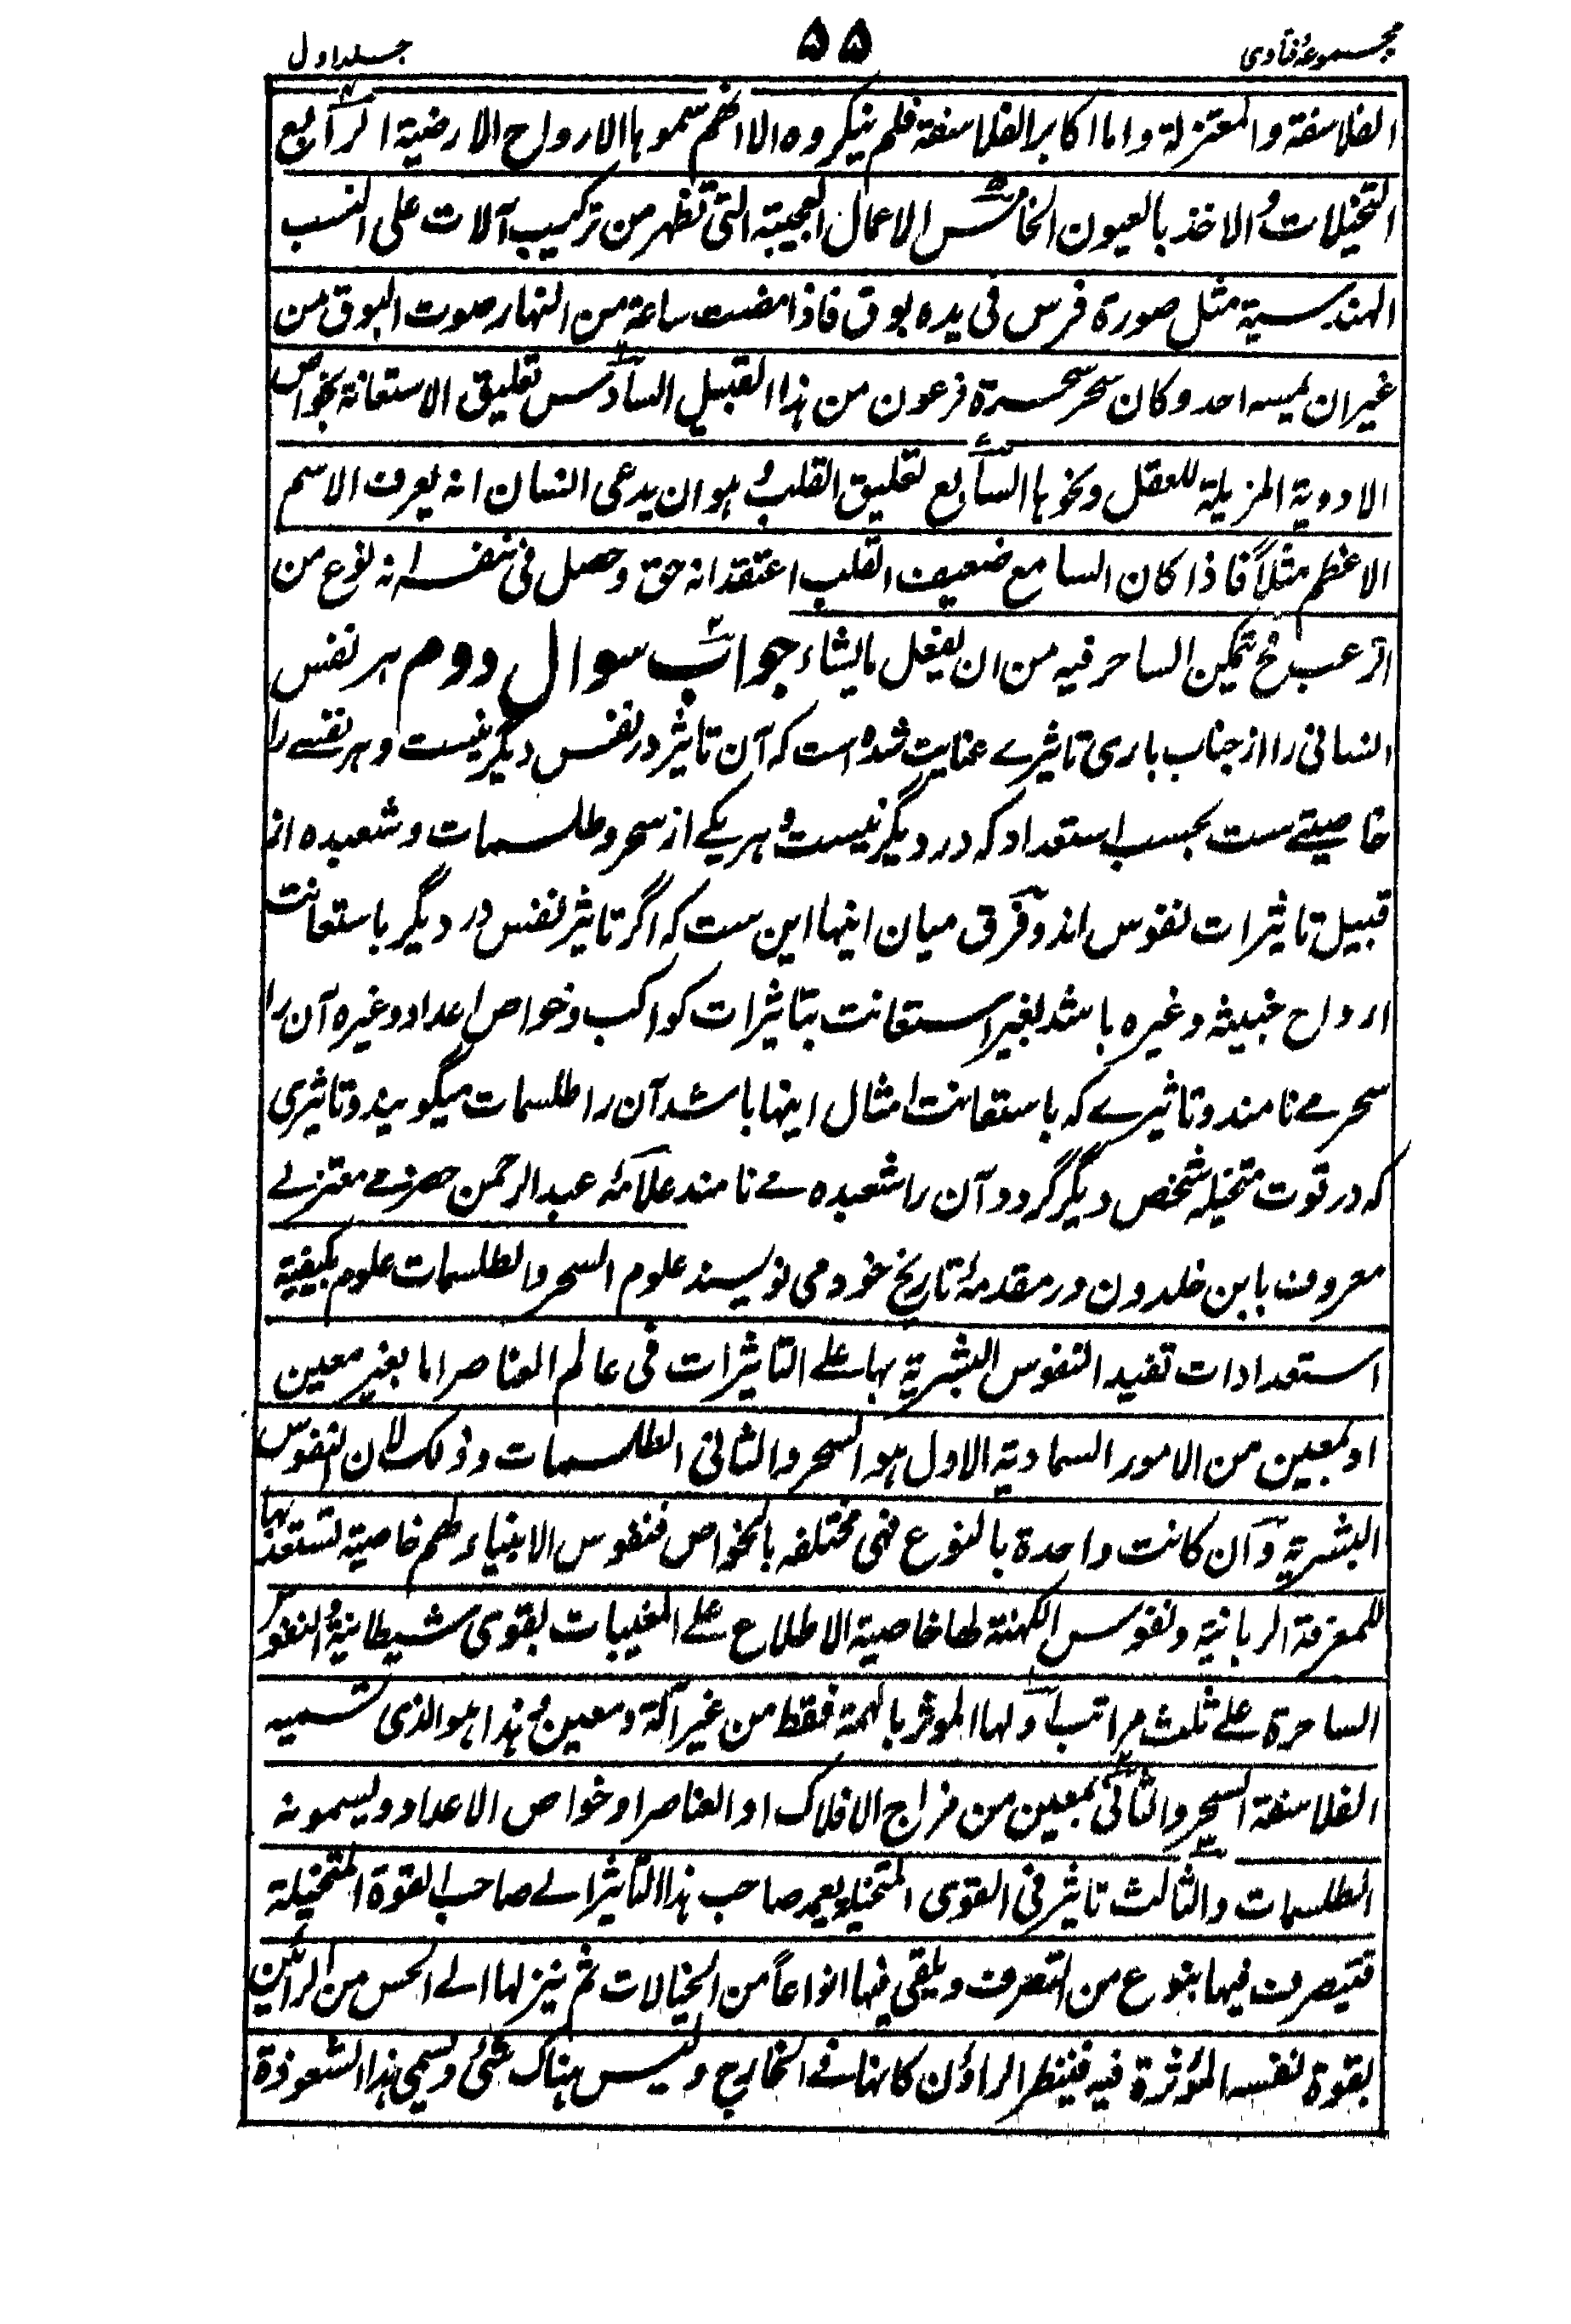 مجموعۂ فتاوی ۵۵ جلد اول
الفلاسفة والمعتزلة واما اکابر الفلاسفة فلم ینکروه الا انهم سموها الارواح الارضیة الرابع
التخیلات والاخذ بالعیون الخامس الاعمال العجیبة التی تظهر من ترکیب آلات علی النسب
الهندسیة مثل صورة فرس فی یده بوق فاذا مضت ساعة من النهار صوت البوق من
غیر ان یمسه احد وکان سحر سحرة فرعون من هذا القبیل السادس تعلیق الاستعانة بخواص
الادویة المزیلة للعقل ونحوها السابع تعلیق القلب وهو ان یدعی انسان انه یعرف الاسم
الاعظم مثلاً فاذا کان السامع ضعیف القلب اعتقد انه حق وحصل فی نفسه انه نوع من
الرعب فح تمکین الساحر فیه من ان یفعل ما یشاء جواب سوال دوم هر نفس
انسانی را از جناب باری تاثیرے عنایت شده است که آن تاثیر در نفس دیگر نیست و هر نفسے را
خاصیتے ست بحسب استعداد که در دیگر نیست و هر یکے از سحر و طلسمات و شعبده از
قبیل تاثیرات نفوس اند و فرق میان اینها این ست که اگر تاثیر نفس در دیگر باستعانت
ارواح خبیثه و غیره باشد بغیر استعانت بتاثیرات کواکب و خواص اعداد و غیره آن را
سحر مے نامند و تاثیرے که باستعانت امثال اینها باشد آن را طلسمات میگویند و تاثیری
که در قوت متخیله شخص دیگر گردد آن را شعبده مے نامند علامۂ عبد الرحمن حضرمے معتزلے
معروف بابن خلدون در مقدمۂ تاریخ خود می نویسند علوم السحر والطلسمات علوم بکیفیة
استعدادات تفید النفوس البشریة بها علے التاثیرات فی عالم العناصر اما بغیر معین
او بمعین من الامور السماویة الاول هو السحر والثانی الطلسمات وذلک لان النفوس
البشریة وان کانت واحدة بالنوع فهی مختلفه بالخواص فنفوس الانبیاء لهم خاصیة تستعد بها
للمعرفة الربانیة ونفوس الکهنة لها خاصیة الاطلاع علے المغیبات بقوی شیطانیة والنفوس
الساحرة علے ثلث مراتب اولها الموثر بالهمة فقط من غیر آلة ومعین وهذا هو الذی تسمیه
الفلاسفة السحر والثانی بمعین من مزاج الافلاک او العناصر او خواص الاعداد ویسمونه
الطلسمات والثالث تاثیر فی القوی المتخیلة یعمد صاحب هذا التاثیر الے صاحب القوة المتخیلة
فیتصرف فیها بنوع من التصرف ویلقی فیها انواعاً من الخیالات ثم ینزلها الے الحس من الرائین
بقوة نفسه المؤثرة فیه فینظر الراؤن کانها فے الخارج ولیس هناک شئ ویسمی هذا الشعوذة